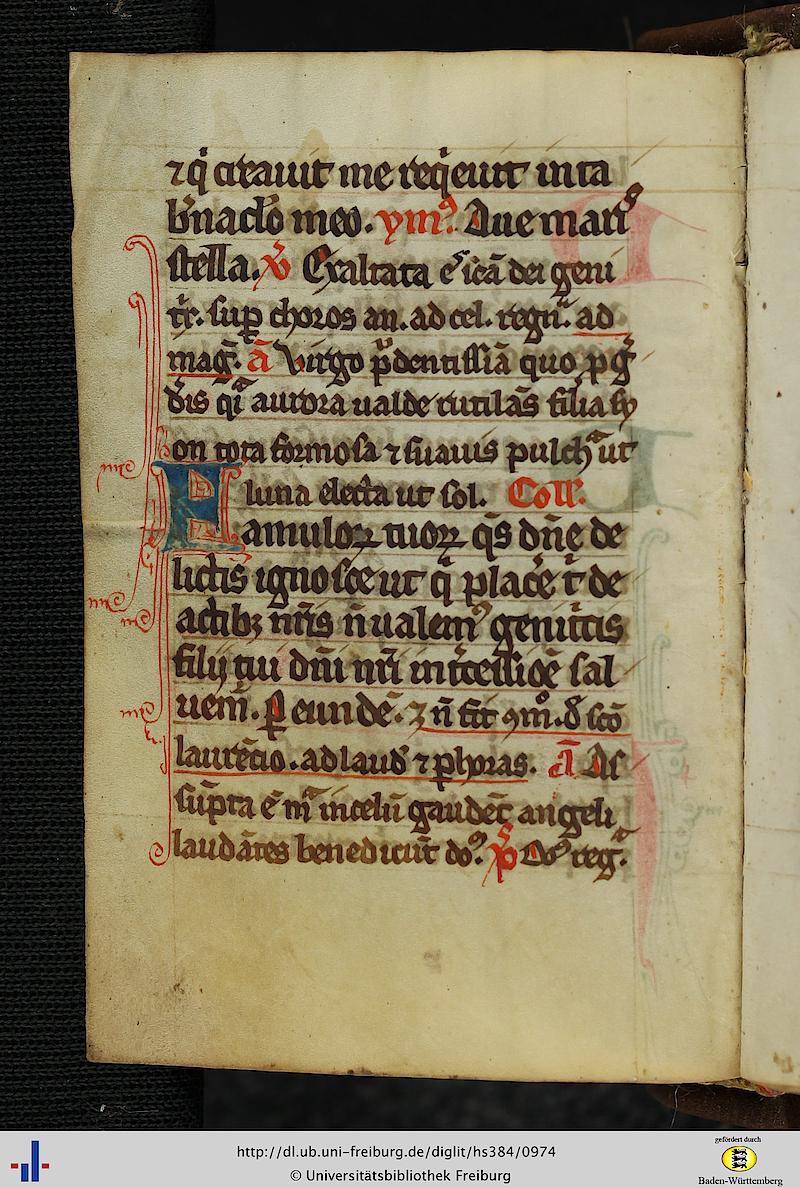 ⁊ q̇ creauit me req̇euit in ta
b̾nac̄lo meo. ym⁹. Aue maris
stella. v̾ Exaltata ē s̄cā dei geni
tr̄. sup̲ choros an. ad cel. regn̄. ad
mag̾. ā Virgo p̾dentissīa quo p̲g̾
d̾is qͣi aurora ualde rutilās filia sy
on tota formosa ⁊ suauis pulchͣ ut
luna electa ut sol. Coll̾.
Famuloꝝ tuoꝝ q̄s dn̄e de
lictis ignosce ut q̇ placē t̾ de
actibꝫ nr̄is n̄ ualem⁹ genit̾cis
filij tui dn̄i nr̄i int̾cessiōe sal
uem̾. ꝑ eundē. ⁊ n̄ fit ꝯm̊. đ sc̄o
laurēcio. ad laud̾ ⁊ ꝑ horas. ā As
sūpta ē mͣ in celū gaudēt angeli
laudātes benedicūt do⁹. p̾s Dn̄s reg̾.
http://dl.ub.uni-freiburg.de/diglit/hs384/0974
© Universitätsbibliothek Freiburg
gefördert durch
Baden-Württemberg